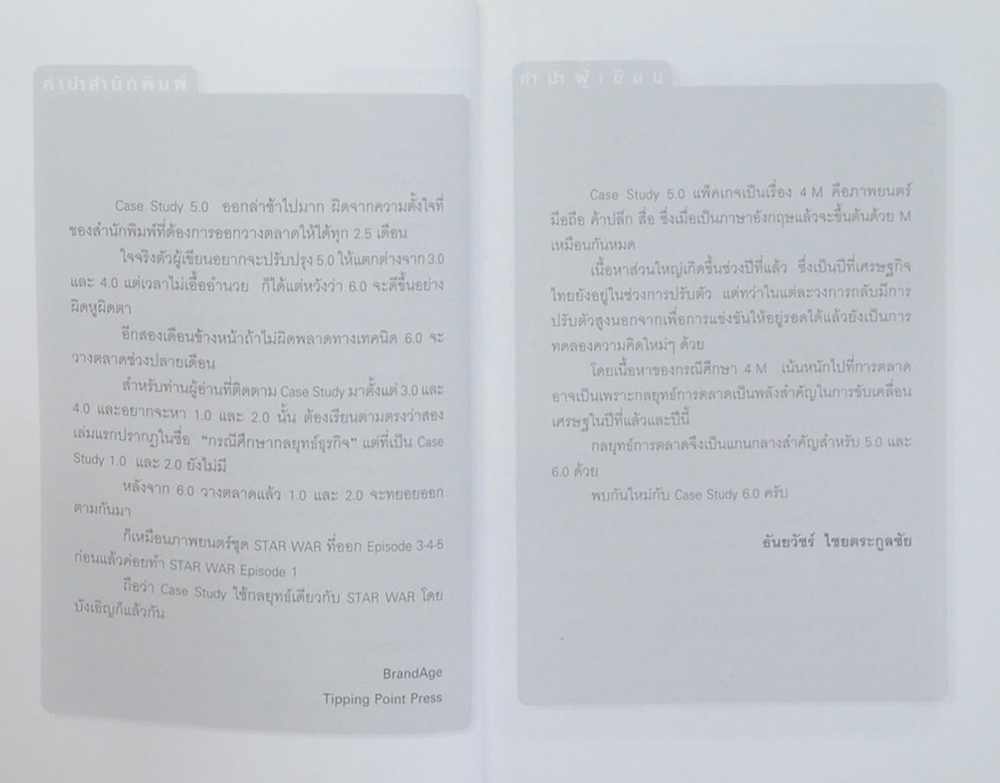 คำนำสำนักพิมพ์
Case Study 5.0 ออกล่าช้าไปมาก ผิดจากความตั้งใจที่
ของสำนักพิมพ์ที่ต้องการออกวางตลาดให้ได้ทุก 2.5 เดือน
ใจจริงตัวผู้เขียนอยากจะปรับปรุง 5.0 ให้แตกต่างจาก 3.0
และ 4.0 แต่เวลาไม่เอื้ออำนวย ก็ได้แต่หวังว่า 6.0 จะดีขึ้นอย่าง
ผิดหูผิดตา
อีกสองเดือนข้างหน้าถ้าไม่ผิดพลาดทางเทคนิด 6.0 จะ
วางตลาดช่วงปลายเดือน
สำหรับท่านผู้อ่านที่ติดตาม Case Study มาตั้งแต่ 3.0 และ
4.0 และอยากจะหา 1.0 และ 2.0 นั้น ต้องเรียนตามตรงว่าสอง
เล่มแรกปรากฏในชื่อ “กรณีศึกษากลยุทธ์ธุรกิจ” แต่ที่เป็น Case
Study 1.0 และ 2.0 ยังไม่มี
หลังจาก 6.0 วางตลาดแล้ว 1.0 และ 2.0 จะทยอยออก
ตามกันมา
ก็เหมือนภาพยนตร์ชุด STAR WAR ที่ออก Episode 3-4-5
ก่อนแล้วค่อยทำ STAR WAR Episode 1
ถือว่า Case Study ใช้กลยุทธ์เดียวกับ STAR WAR โดย
บังเอิญก็แล้วกัน
BrandAge
Tipping Point Press
คำนำผู้เขียน
Case Study 5.0 แพ็คเกจเป็นเรื่อง 4 M คือภาพยนตร์
มือถือ ค้าปลีก สื่อ ซึ่งเมื่อเป็นภาษาอังกฤษแล้วจะขึ้นต้นด้วย M
เหมือนกันหมด
เนื้อหาส่วนใหญ่เกิดขึ้นช่วงปีที่แล้ว ซึ่งเป็นปีที่เศรษฐกิจ
ไทยยังอยู่ในช่วงการปรับตัว แต่ทว่าในแต่ละวงการกลับมีการ
ปรับตัวสูงนอกจากเพื่อการแข่งขันให้อยู่รอดได้แล้วยังเป็นการ
ทดลองความคิดใหม่ๆ ด้วย
โดยเนื้อหาของกรณีศึกษา 4 M เน้นหนักไปที่การตลาด
อาจเป็นเพราะกลยุทธ์การตลาดเป็นพลังสำคัญในการขับเคลื่อน
เศรษฐในปีที่แล้วและปีนี้
กลยุทธ์การตลาดจึงเป็นแกนกลางสำคัญสำหรับ 5.0 และ
6.0 ด้วย
พบกันใหม่กับ Case Study 6.0 ครับ
ธันยวัชร์ ไชยตระกูลชัย